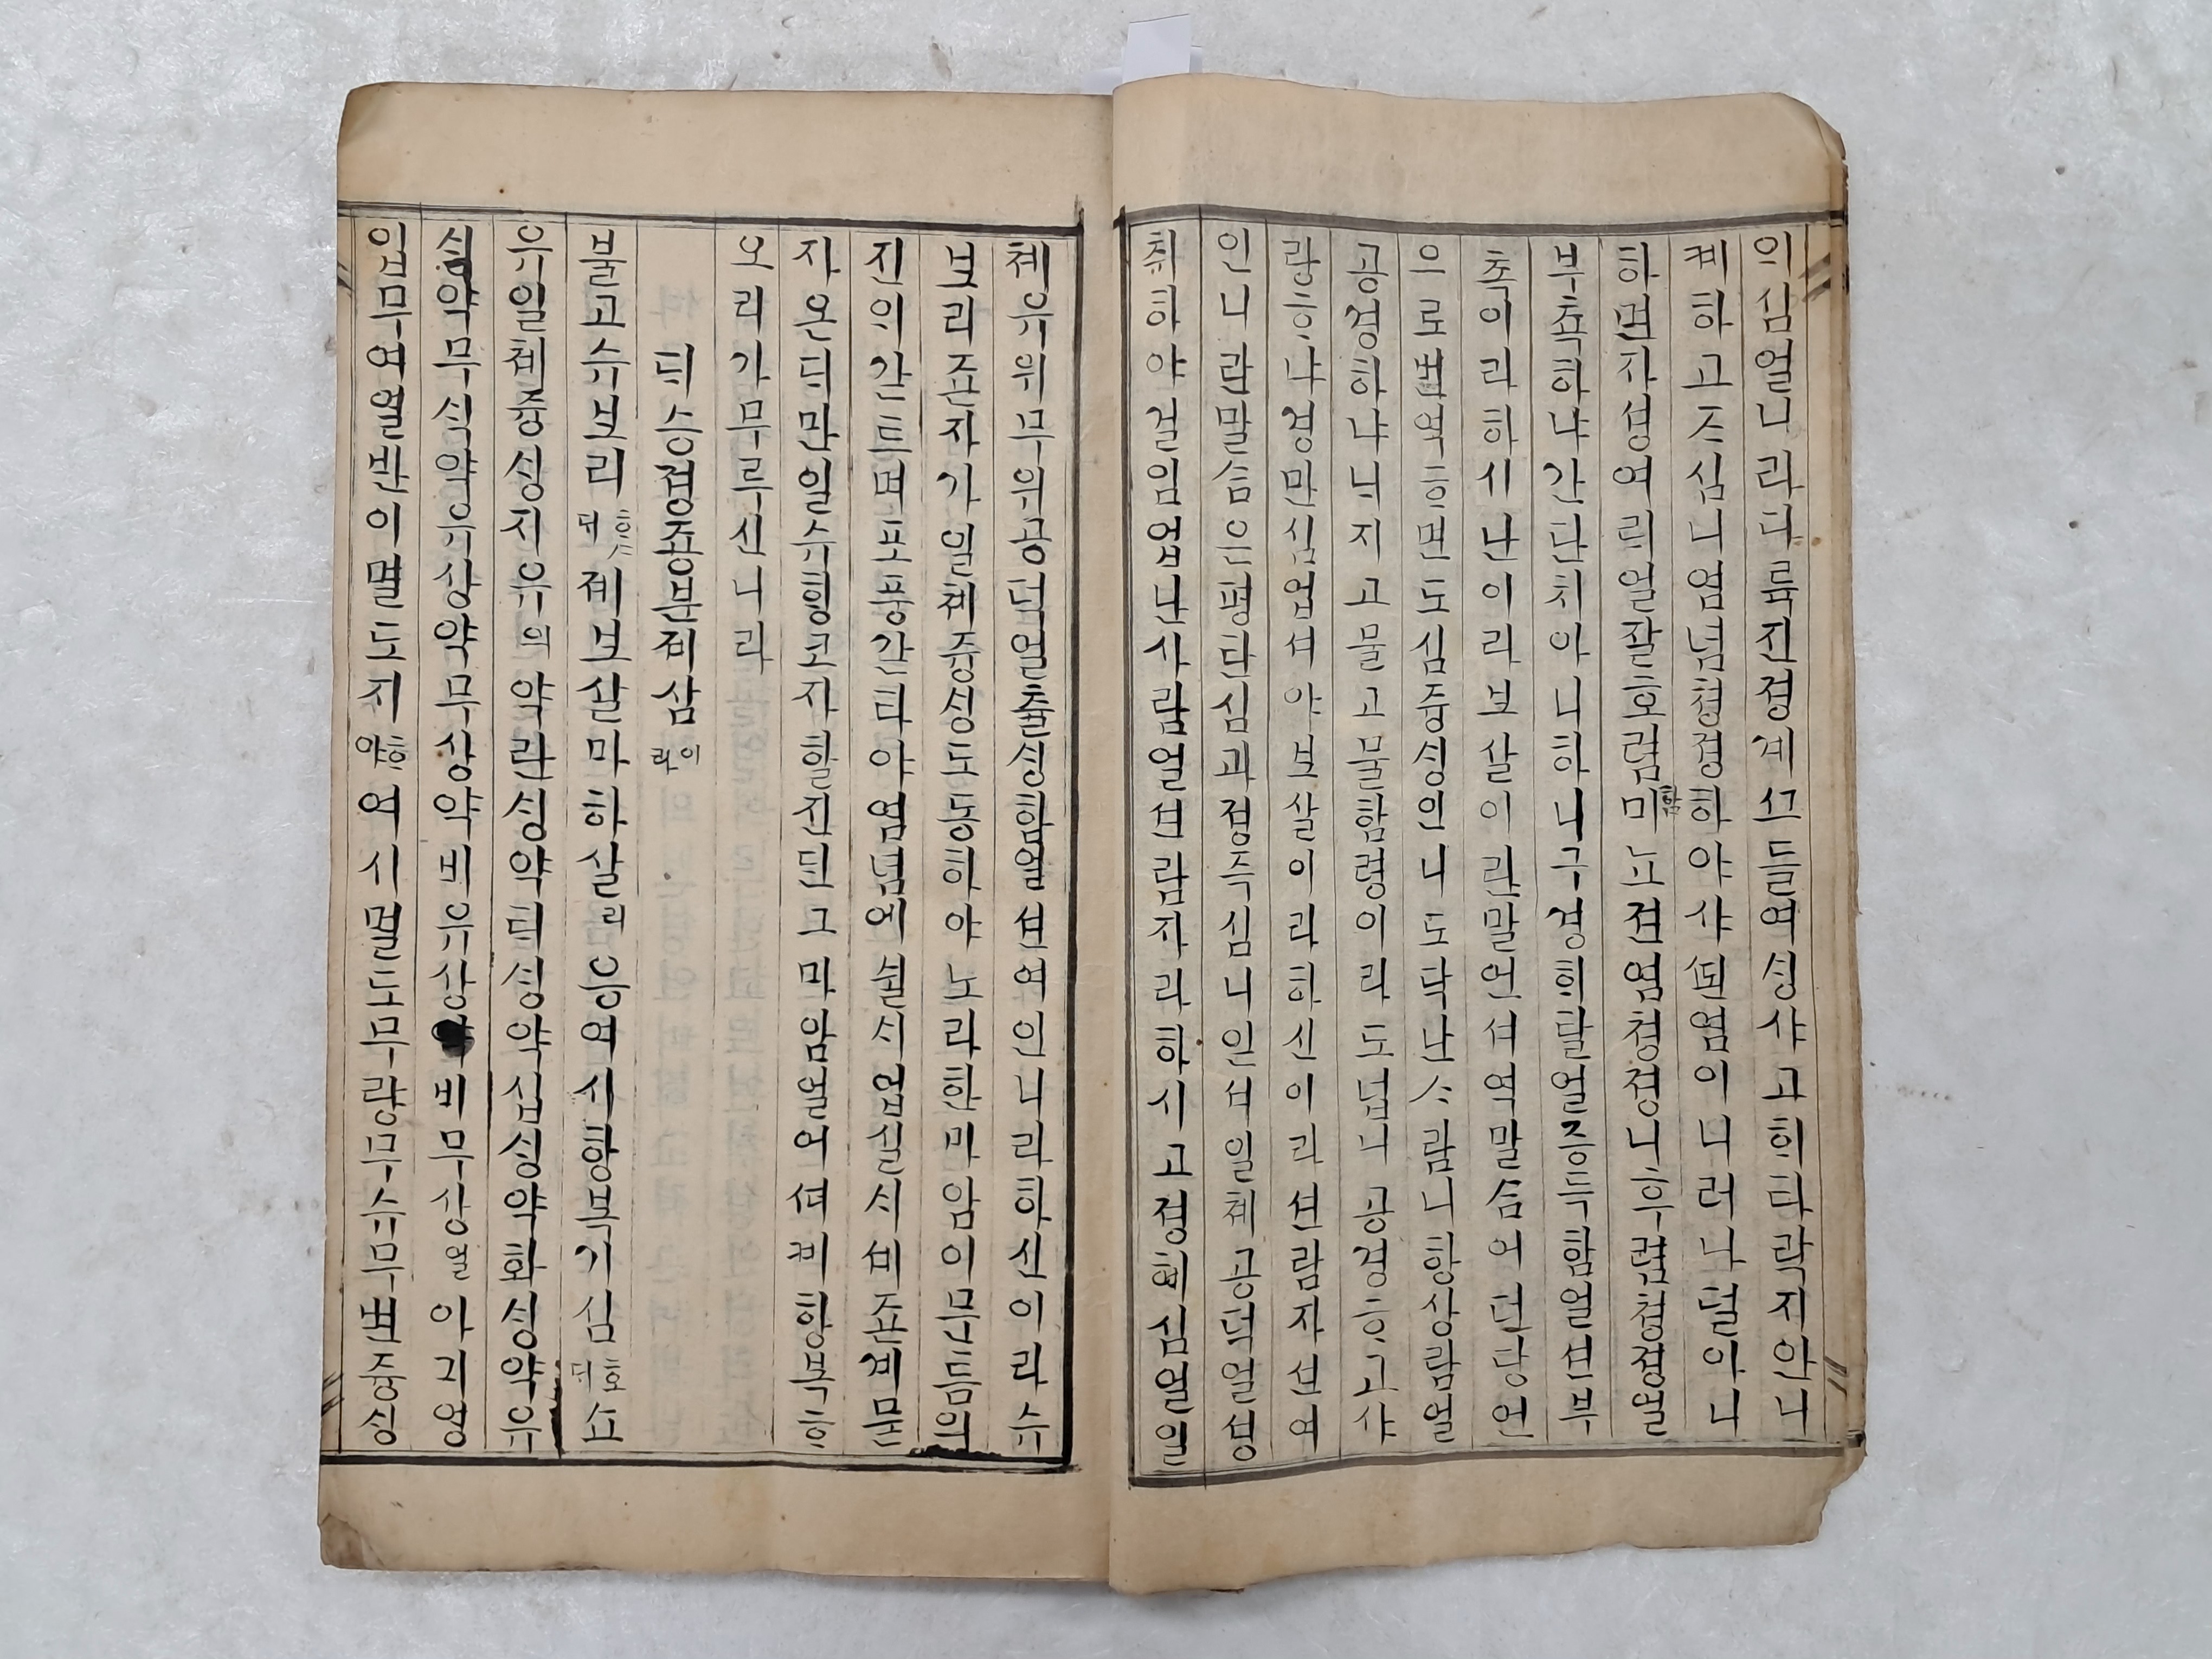 의심얼니라다륵진졍계션들여싱샤고희타락지안니
케하고조심니염념쳥졍하야샤퇸염이니러나덜아니
하면자셩여릭얼잘호렴함미노젼염쳥졍니후렴쳥졍열
부쵹하냐간단치아니하니구경희탈얼증득함얼션부
쵹이라하시난이라보살이란말언셔역말삼어던당언
으로번역흐면도심즁싱인니도닥난스람니항상람얼
공경하냐늬지고물고물함령이라도덥니공경흐고샤
랑흐냐경만심업셔야보살이라하신이라션람자션여
인니란말삼은평탄심과졍즉심니인셔일체공덕얼셩
취하야걸임업난사람얼션람자라하시고졍혜심얼일
체유위무위공덕얼출싱함얼션여인니라하신이라슈
보리죤자가일체즁싱도동하야노라한마암이문듬의
진의간트며포풍간타야염념에쉴시업실시셰죤께문
자온듸만일슈힝코자할진딘그마암얼어셔케항복흐
오리가무루신니라
듸승졍죵분제삼이라
불고슈보리흐스듸제보살마하살리응여시항복기심호듸쇼
유일체즁싱지유의약란싱약틱싱약십싱약화싱약유
싱약무식약유상약무상약비유상약비무상얼아기영
입무여열반이멸도지흐야여시멸도무량무슈무변즁싱